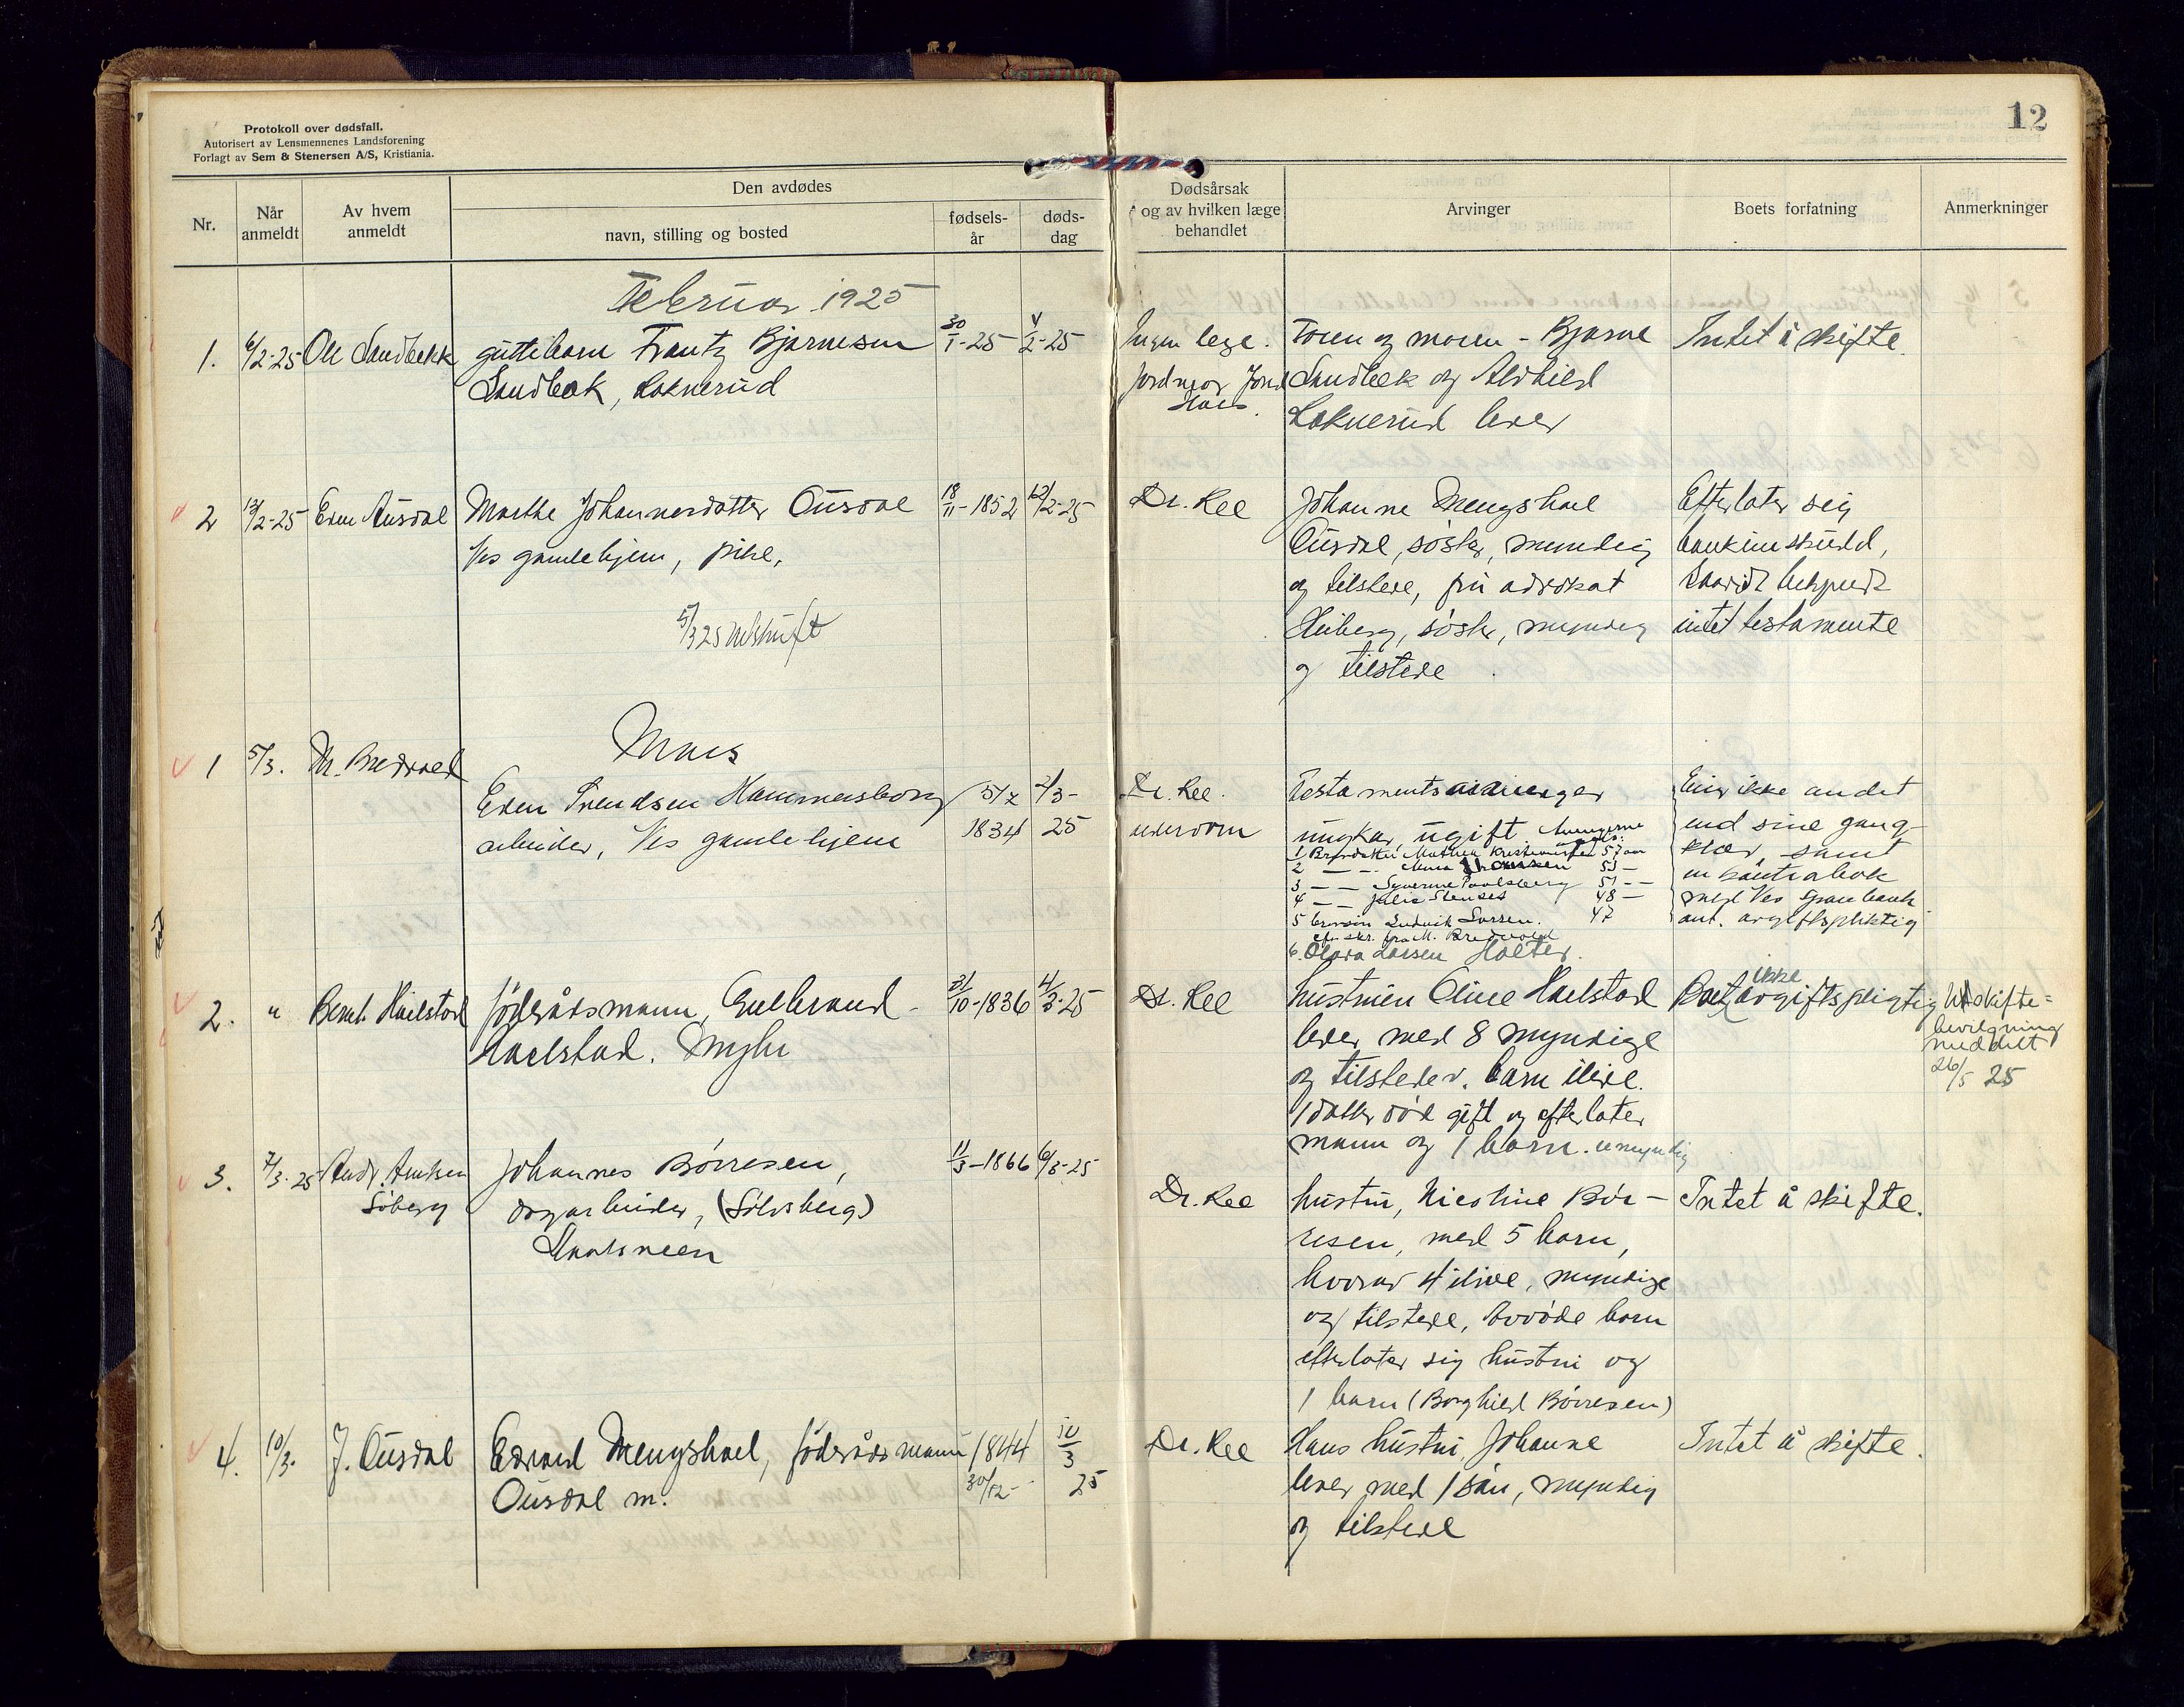 Protokoll over dødsfall.
Autorisert av Lensmennenes Landsforening
Forlagt av Sem & Stenersen A/S, Kristiania.
12
Nr.
Når anmeldt
Av hvem anmeldt
Den avdødes
navn, stilling og bosted
fødsels-år
døds-dag
Dødsårsak og av hvilken læge behandlet
Arvinger
Boets forfatning
Anmerkninger
Februar 1925
1. 6/2-25 Ole Sandbekk
guttebarn Frantz Bjarnesen
Sandbek, Loknerud
30/1-25 4/2-25
Ingen lege.
Jordmor
Foren og moren - Bjarne
Sandbek og Alvhild
Loknerud lever
Intet å skifte.
2 13/2-25 Even Ausdal
Marthe Johannesdatter Ousdal
Ves gamlehjem, pike,
5/3 25
18/11-1852 12/2-25
Dr. Ree
Johanne Mengshoel
Ousdal, søster, myndig
og tilstede, fru advokat
Heiberg, søster, myndig
og tilstede
Efterlater sig
bankinskudd,
intet testamente
Mars
1 5/3. M. Bredvold
Even Svendsen Hammersborg
arbeider, Ves gamlehjem
5/7 1834
2/3-25
Dr. Ree.
Testamentsarvinger
ungkar, ugift Arvingerne
1 Brordatter Mathea Kristiansen 57 aar
2 — — Anna 53 —
3 — — Syverine Paulsberg 51 —
4 — — Julie Stenset 48 —
5 Ludvik Larsen. 47
M. Bredvold
6. Olava Larsen Holter.
Eier ikke andet
end sine gang-
klær, samt
en kontrabok
med Ves Sparebank
ant. avgiftspliktig
2. " Bernt Haelstad
føderådsmann, Gulbrand
Haelstad. Myhr
31/10-1836 4/3-25
Dr. Ree
hustruen Oline Haelstad
lever med 8 myndige
og tilstedev. barn ilive.
1 datter død gift og efterlater
mann og 1 barn. umyndig
Boet ikke avgiftspligtig
Uskifte=
bevilgning
meddelt
26/5 25
3. 7/3-25 Andr. Amlien
Søberg
Johannes Børresen,
dagarbeider, (Sølvsberg)
11/3-1866 6/3-25
Dr. Ree
hustru, Nicoline Bør-
resen, med 5 barn,
hvorav 4 ilive, myndige
og tilstede, Avdøde barn
efterlater sig hustru og
1 barn (Borghild Børresen)
Intet å skifte.
4. 10/3. J. Ousdal
Edvard Mengshoel, føderådsmann
Ousdal m.
1844
30/12-
10/3
25
Dr. Ree
Hans hustru, Johanne
lever med 1 søn, myndig
og tilstede
Intet å skifte.